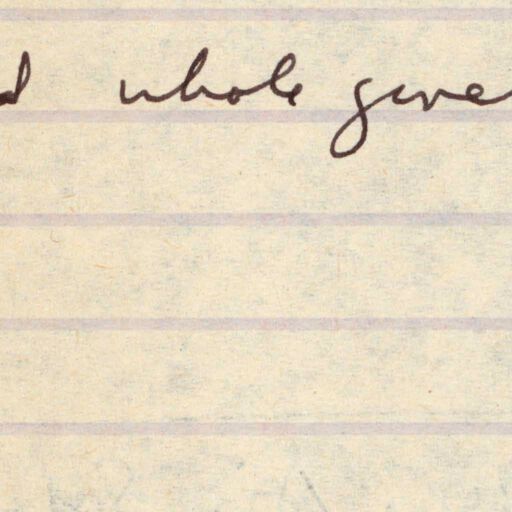 d whole give